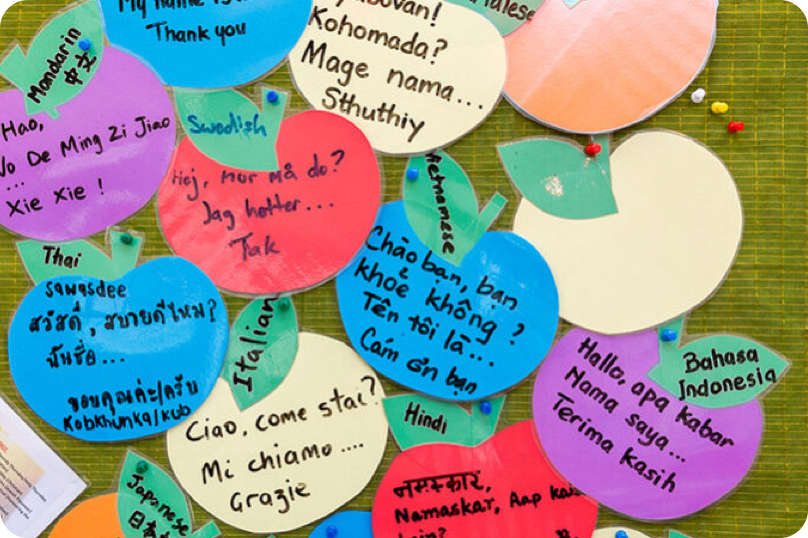 My name is
Thank you
Kohomada?
Mage nama...
Sthuthiy
Mandarin
中文
Hao,
De Ming Zi Jiao
...
Xie Xie !
Swedish
Hej, hur må do?
Jag hetter...
Tak
Vietnamese
Chào bạn, bạn
khoẻ không ?
Tên tôi là...
Cám ơn bạn
Thai
Sawasdee
สวัสดี, สบายดีไหม?
ฉันชื่อ...
ขอบคุณค่ะ/ครับ
Kobkhunka/kub
Italian
Ciao, come stai?
Mi chiamo ....
Grazie
Bahasa
Indonesia
Hallo, apa kabar
Nama saya...
Terima kasih
Hindi
नमस्कार,
Namaskar, Aap
Japanese